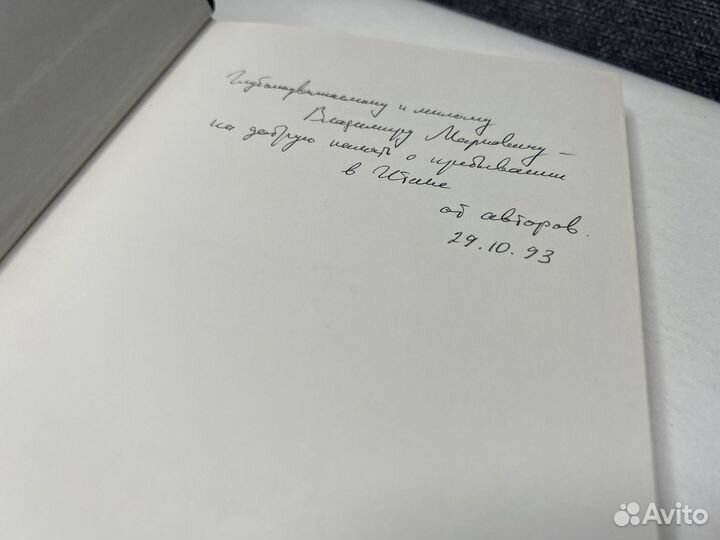 Глубокоуважаемому и милому
Владимиру Марковичу –
на добрую память о пребывании
в Итаке
от авторов.
29.10.93
Avito